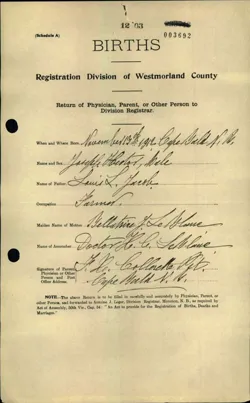 12 03
(Schedule A)
003692
BIRTHS
Registration Division of Westmorland County
Return of Physician, Parent, or Other Person to
Division Registrar.
When and Where Born November 13th 1912 Cape Bald N. B.
Name and Sex Joseph Hector, Male
Name of Father Louis L. Jacob
Occupation Farmer
Maiden Name of Mother LeBlanc
Name of Accoucheur Doctor H. C. LeBlanc
Signature of Parent,
Physician or Other
Person and Post
Office Address.
F. D. Collette
Cape Bald N. B.
NOTE. The above Return is to be filled in carefully and accurately by Physician, Parent, or
other Person, and forwarded to Antoine J. Leger, Division Registrar, Moncton, N. B., as required by
Act of Assembly, 50th Vic., Cap. "An Act to provide for the Registration of Births, Deaths and
Marriages."